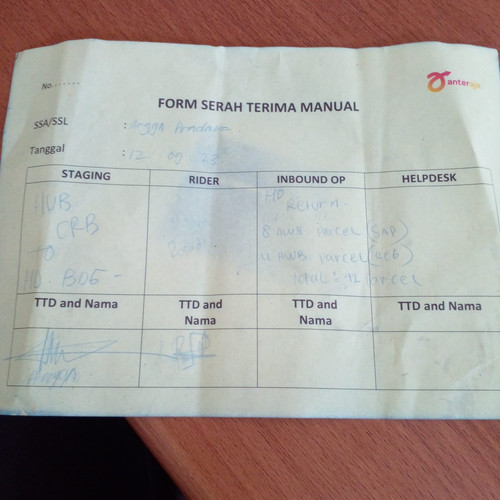 No.......
anteraja
FORM SERAH TERIMA MANUAL
SSA/SSL :
Tanggal : 12 09 23
STAGING RIDER INBOUND OP HELPDESK
HUB
CRB
TO
HD. BOS -
HD
RETURN.
8 AWB parcel (SND)
4 AWB parcel (REG)
total : 12 parcel
TTD and Nama TTD and Nama TTD and Nama TTD and Nama